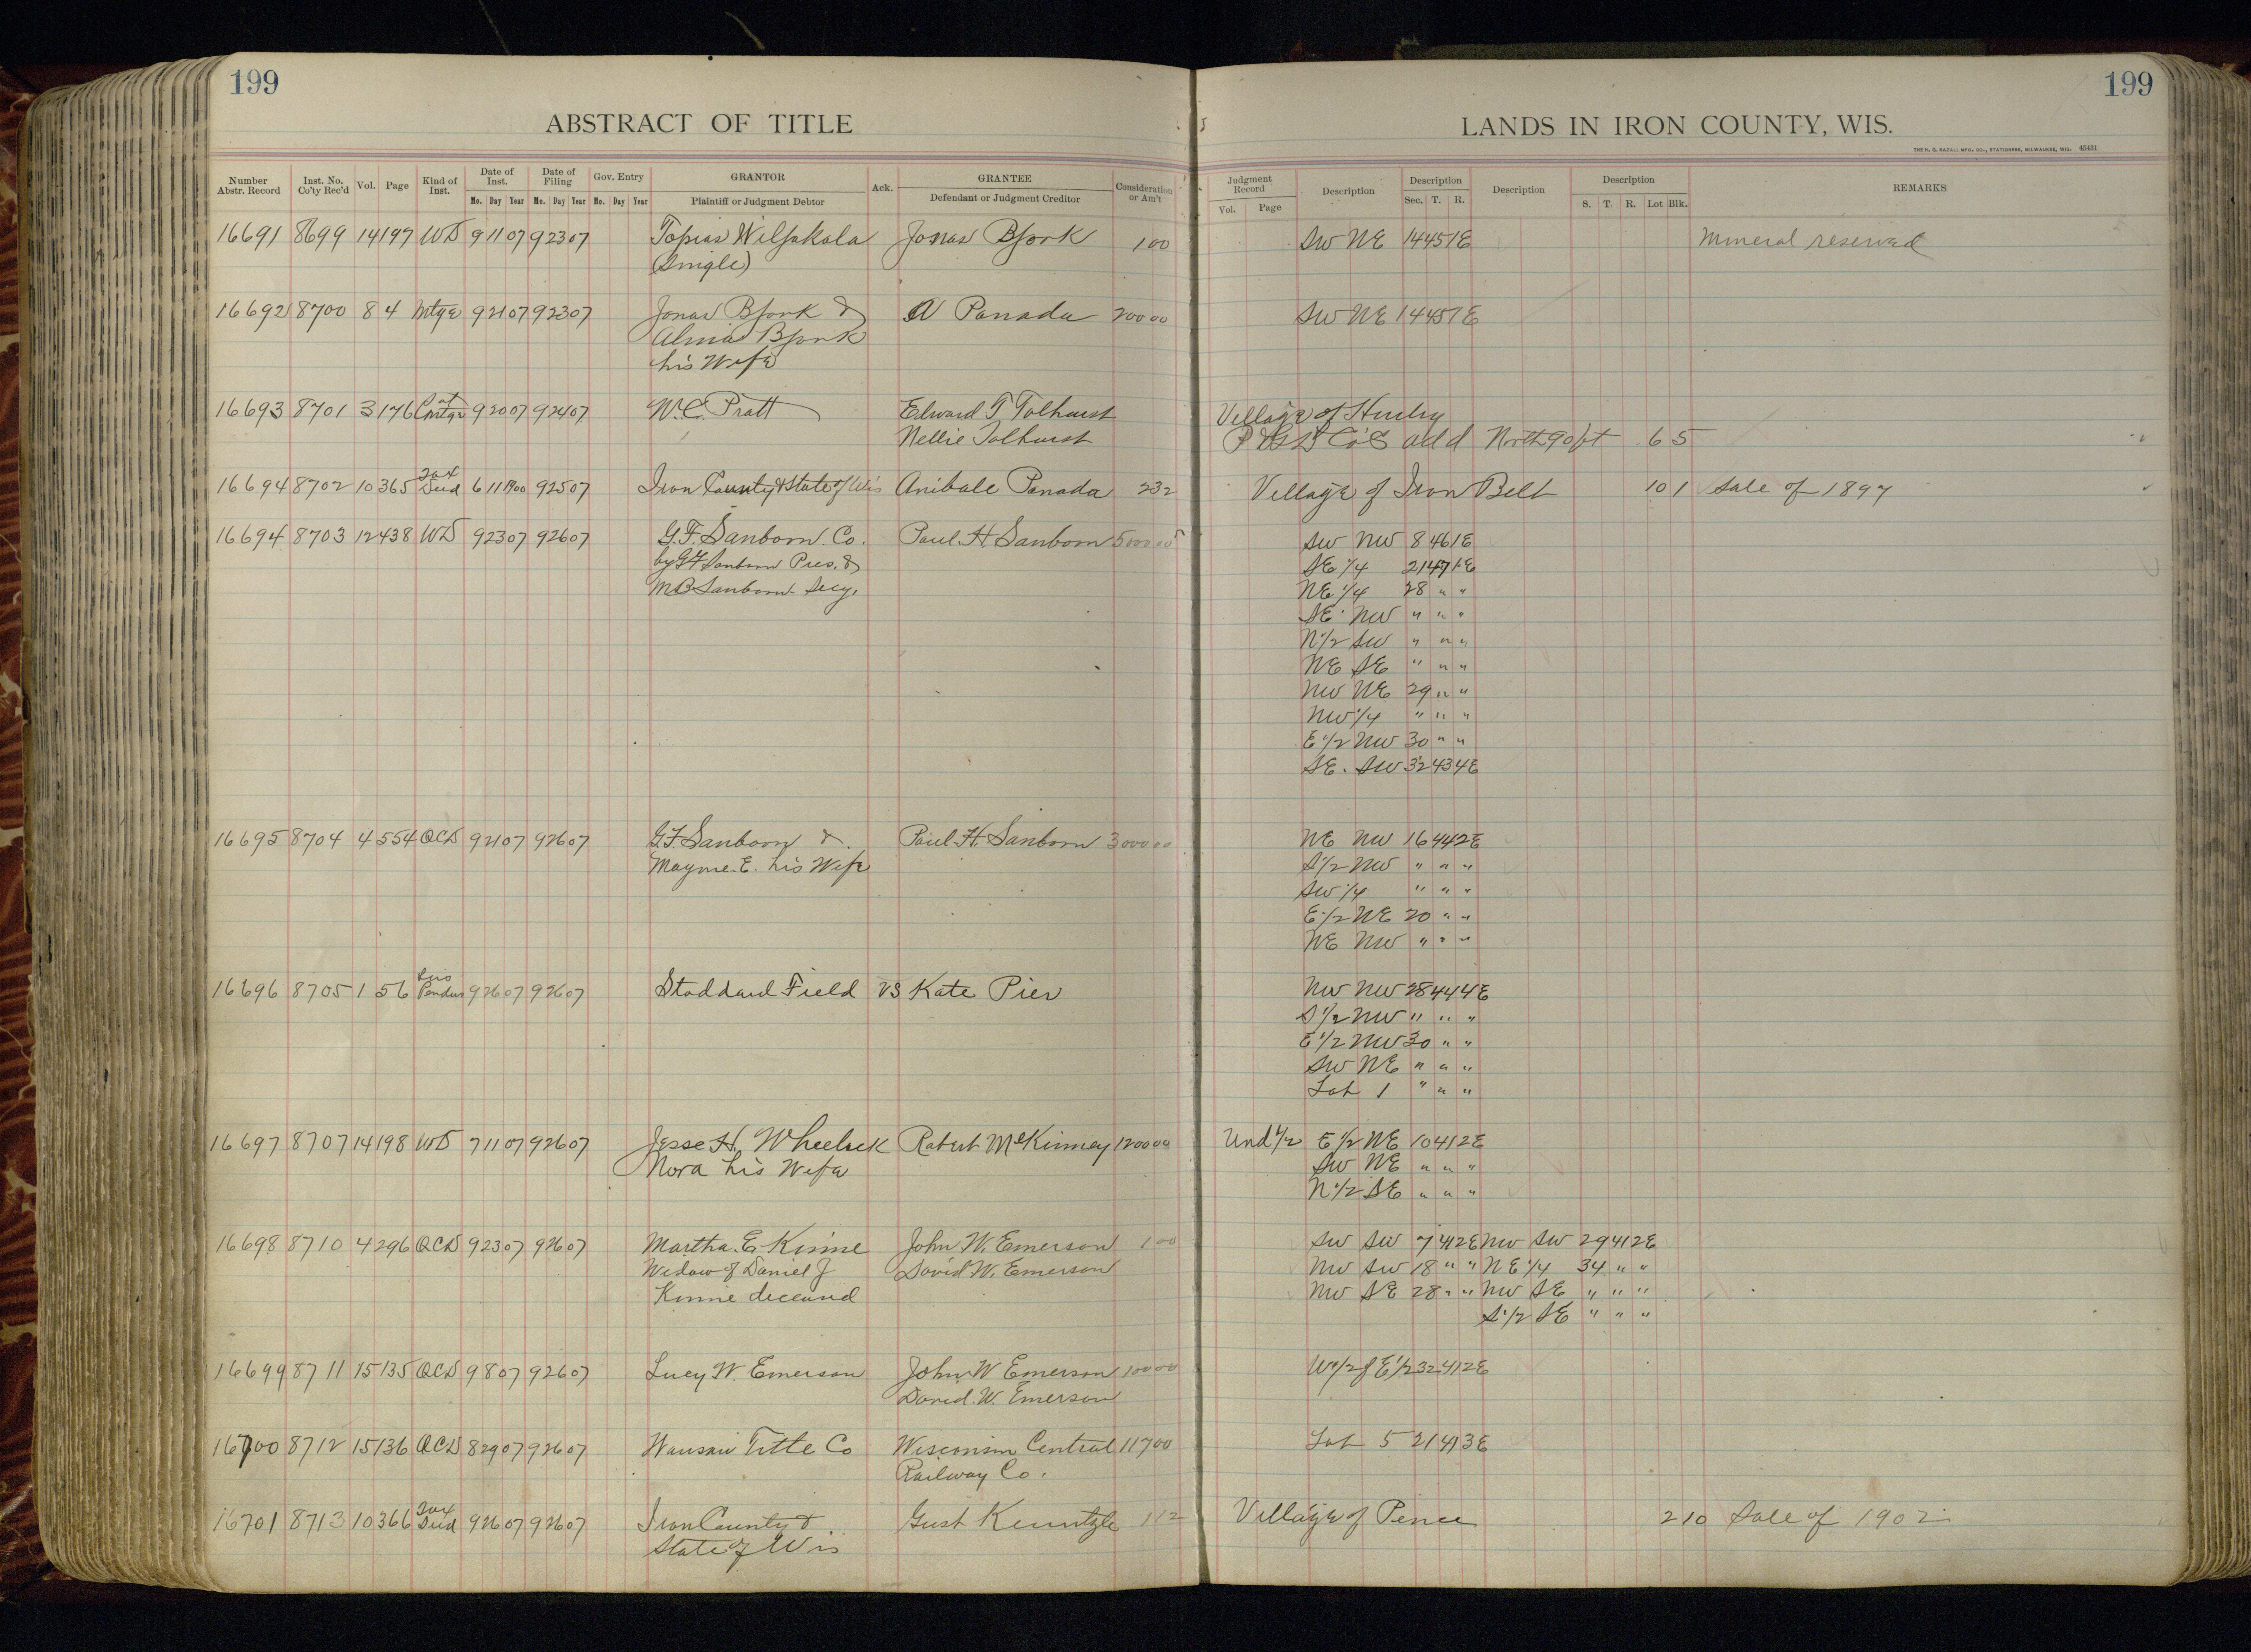 199
199
ABSTRACT OF TITLE
LANDS IN IRON COUNTY, WIS.
THE H. G. RAZALL MFG. CO., STATIONERS, MILWAUKEE, WIS. 43431
Number Abstr. Record Inst. No. Co'ty Rec'd Vol. Page Kind of Inst. Date of Inst. Mo. Day Year Date of Filing Mo. Day Year Gov. Entry Mo. Day Year GRANTOR Plaintiff or Judgment Debtor Ack. GRANTEE Defendant or Judgment Creditor Consideration or Am't
Judgment Record Vol. Page Description Description Sec. T. R. Description Description S. T. R. Lot Blk. REMARKS
16691 8699 14 197 WD 9 11 07 9 23 07 Jonas Bjork 1 00 SW NE 14 45 1E Mineral reserved
(Single)
16692 8700 8 4 Mtge 9 21 07 9 23 07 Jonas Bjork & A Panada 200 00 SW NE 14 45 1E
Alma Bjork
his Wife
16693 8701 3 176 9 20 07 9 24 07 W.C. Pratt Edward T Tolhurst Village of Hurley
Nellie Tolhurst Co's add North 90 ft 6 5
16694 8702 10 365 Tax Deed 6 11 1900 9 25 07 Iron County & State of Wis Anibale Panada 2 32 Village of Iron Belt 10 1 Sale of 1897
16694 8703 12 438 WD 9 23 07 9 26 07 G.F. Sanborn Co. Paul H Sanborn 5000 00 SW NW 8 46 1E
by G F Sanborn Pres. & SE 1/4 21 47 1E
M B Sanborn Secy. NE 1/4 28 " "
SE NW " " "
N 1/2 SW " " "
NE SE " " "
NW NE 29 " "
NW 1/4 " " "
E 1/2 NW 30 " "
SE. SW 32 43 4E
16695 8704 4 554 QCD 9 21 07 9 26 07 G.F Sanborn & Paul H Sanborn 3000 00 NE NW 16 44 2E
Mayme. E. his Wife S 1/2 NW " " "
SW 1/4 " " "
E 1/2 NE 20 " "
NE NW " " "
16696 8705 1 56 Lis Pendens 9 26 07 9 26 07 Stoddard Field vs Kate Pier NW NW 28 44 4E
S 1/2 NW " " "
E 1/2 NW 30 " "
SW NE " " "
Lot 1 " " "
16697 8707 14 198 WD 7 11 07 9 26 07 Jesse H. Wheelock Robert McKinney 1200 00 Und 1/2 E 1/2 NE 10 41 2E
Nora his Wife SW NE " " "
N 1/2 SE " " "
16698 8710 4 296 QCD 9 23 07 9 26 07 Martha. E. Kinne John W. Emerson 1 00 SW SW 7 41 2E NW SW 29 41 2E
Widow of Daniel J David W. Emerson NW SW 18 " " NE 1/4 34 " "
Kinne deceased NW SE 28 " " NW SE " " "
S 1/2 SE " " "
16699 8711 15 135 QCD 9 8 07 9 26 07 Lucy W. Emerson John W Emerson 100 00 W 1/2 of E 1/2 32 41 2E
David. W. Emerson
16700 8712 15 136 QCD 8 29 07 9 26 07 Wausau Title Co Wisconsin Central 117 00 Lot 5 21 41 3E
Railway Co.
16701 8713 10 366 Tax Deed 9 26 07 9 26 07 Iron County & Gust Kuntzle 1 12 Village of Pence 2 10 Sale of 1902
State of Wis